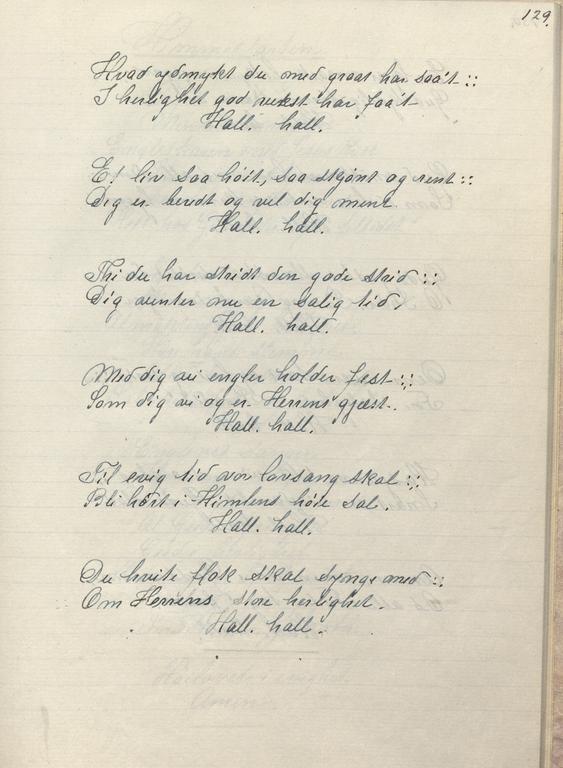 129.
Hvad ydmykt du med graat har saa't ::
I herlighet god vekst har faa't
Hall. hall.
Et liv saa høit, saa skjønt og rent ::
Dig er beredt og vel dig ment
Hall. hall.
Thi du har stridt den gode strid ::
Dig venter nu en salig tid,
Hall. hall.
Med dig vi engler holder fest ::
Som dig vi og er Herrens gjæst.
Hall. hall.
Til evig tid vor lovsang skal ::
Bli hørt i Himlens høie sal.
Hall. hall.
Den hvite flok skal synge med ::
Om Herrens store herlighet.
Hall. hall.